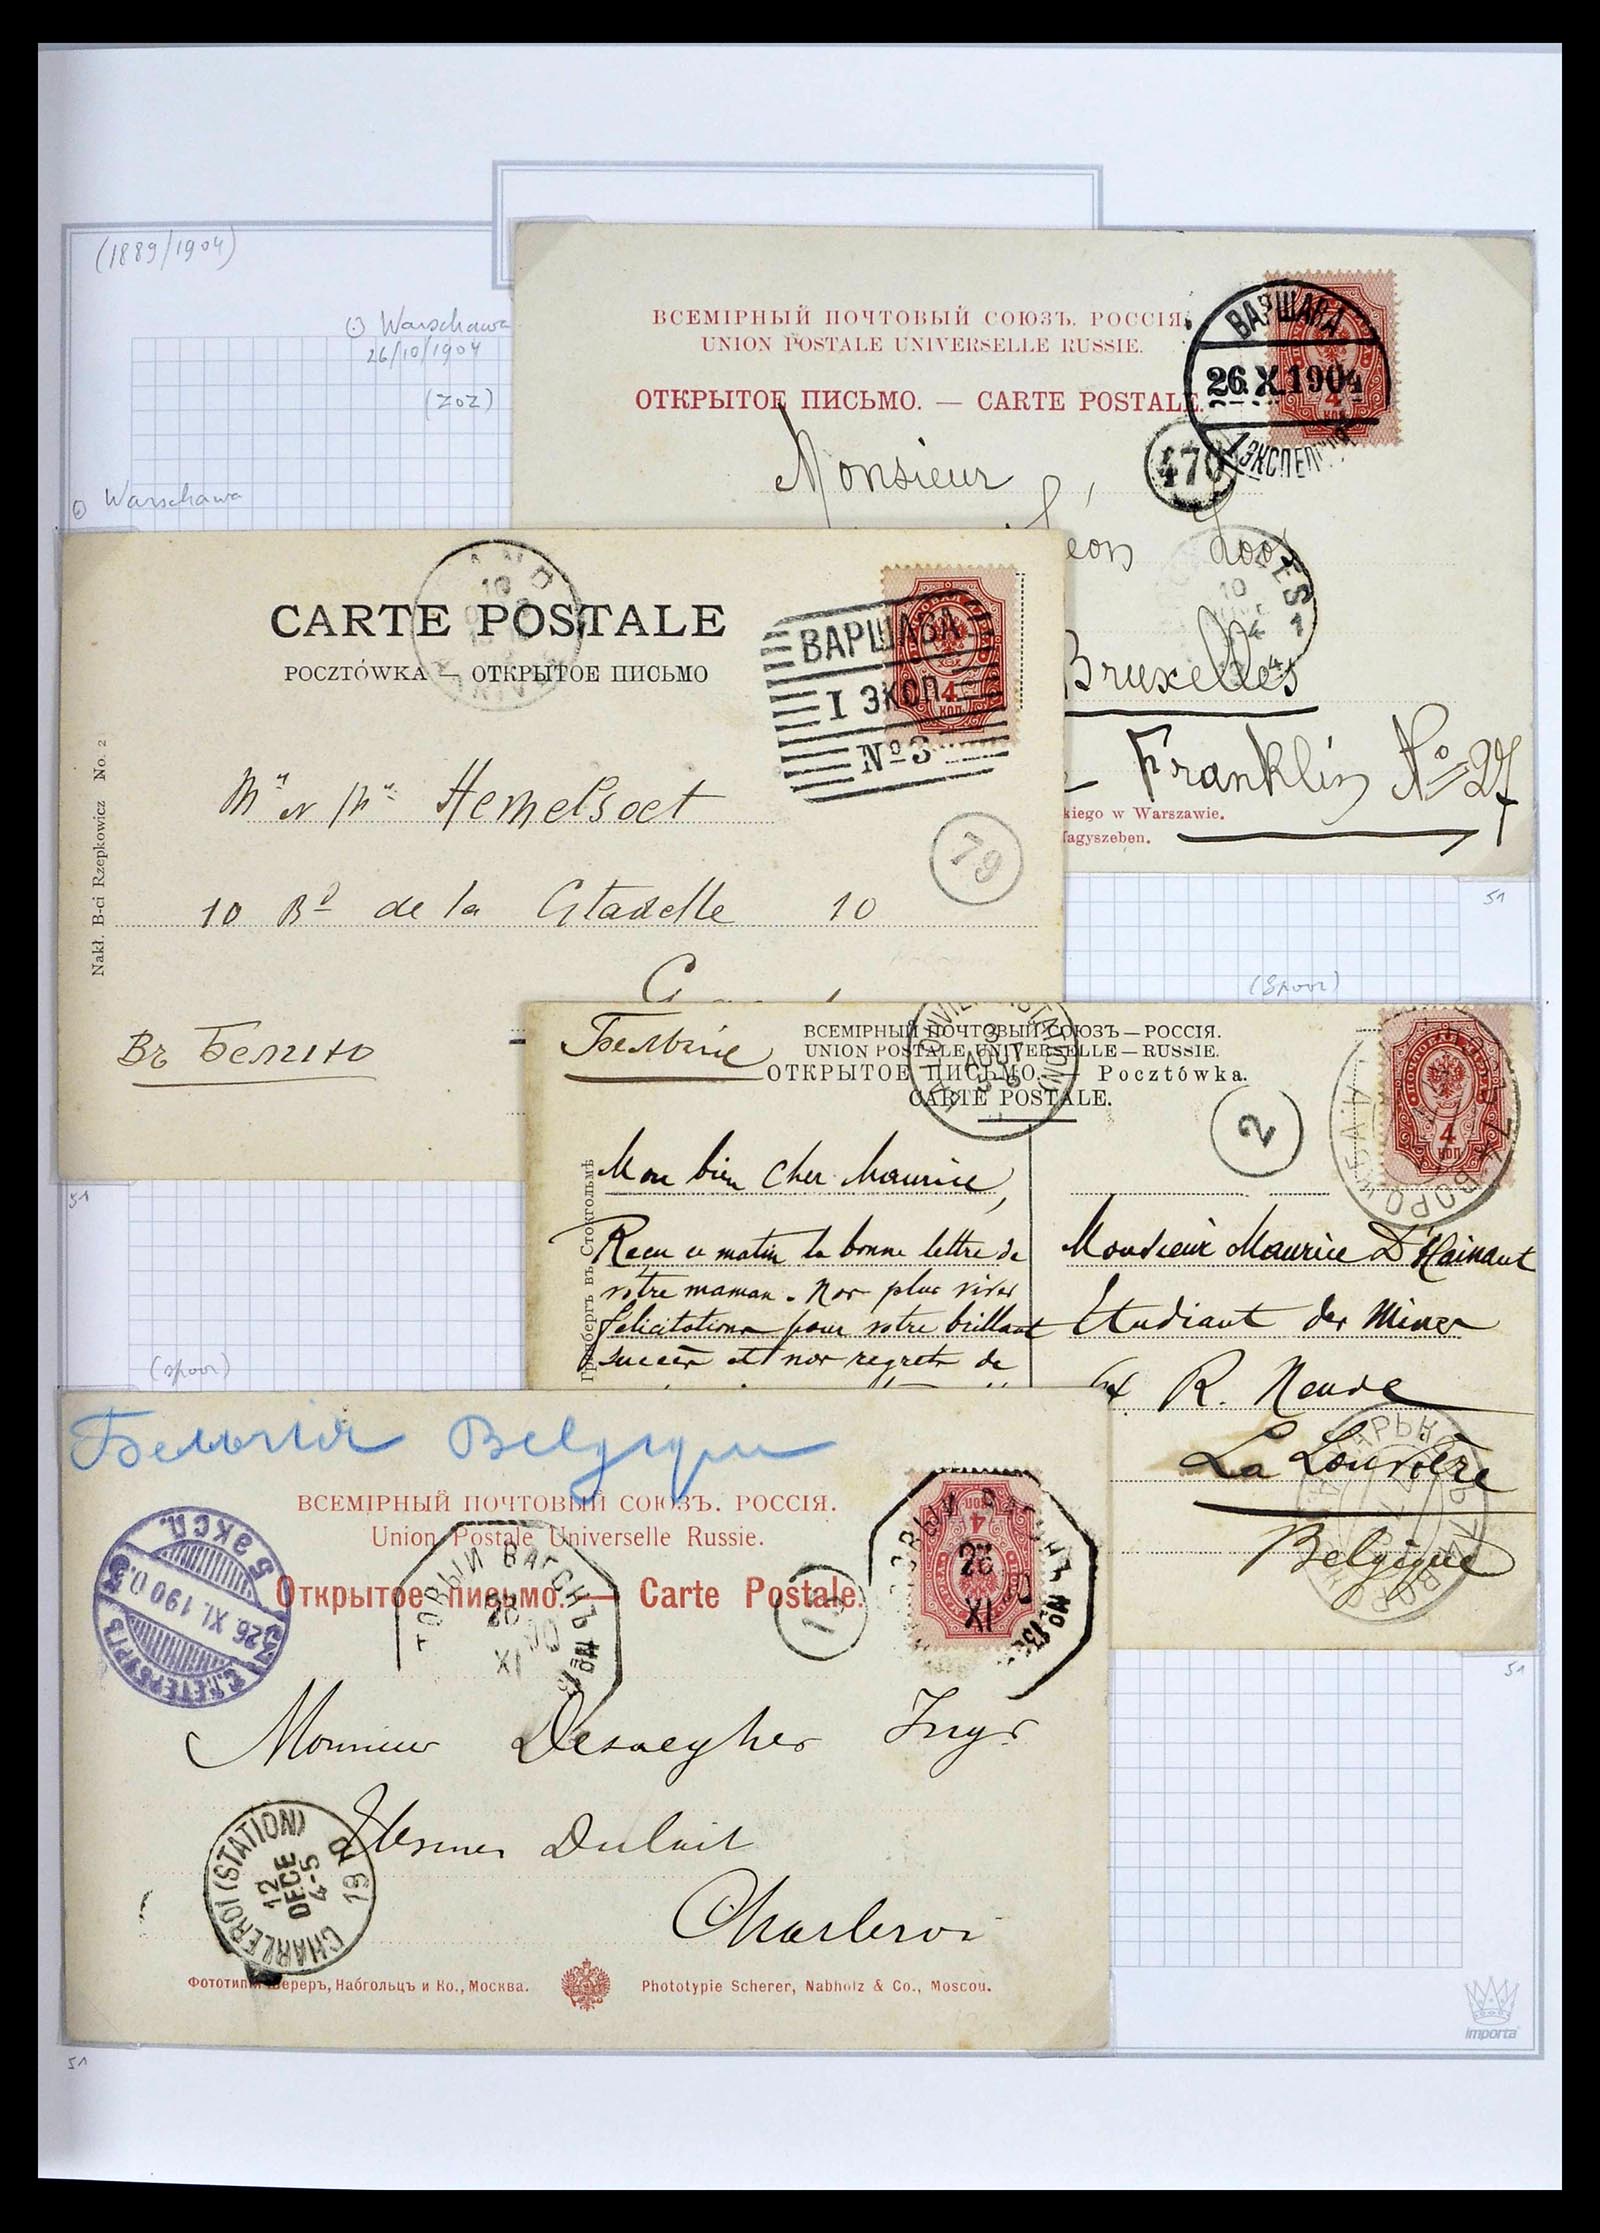 (1889/1904)
Warschawa
26/10/1904
(ZOZ)
Warschawa
ВСЕМІРНЫЙ ПОЧТОВЫЙ СОЮЗЪ. РОССІЯ.
UNION POSTALE UNIVERSELLE RUSSIE.
ОТКРЫТОЕ ПИСЬМО. — CARTE POSTALE.
ВАРШАВА
26.X.1904
1 ЭКСПЕД
470
4
Monsieur
Bruxelles
Franklin No 27
kiego w Warszawie.
Nagyszeben.
51
CARTE POSTALE
POCZTÓWKA — ОТКРЫТОЕ ПИСЬМО
ВАРШАВА
I ЭКСП.
№3
4
КОП
Hemelsoet
79
10 Bd de la Citadelle 10
Въ Бельгію
Nakł. B-ci Rzepkowicz No. 2
51
(Spoor)
Бельгіе
ВСЕМІРНЫЙ ПОЧТОВЫЙ СОЮЗЪ — РОССІЯ.
UNION POSTALE UNIVERSELLE — RUSSIE.
ОТКРЫТОЕ ПИСЬМО. — Pocztówka.
CARTE POSTALE.
2
4
КОП
Mon bien cher Maurice,
Reçu ce matin la bonne lettre de
votre maman. Nos plus vives
félicitations pour votre brillant
succès et nos regrets de
Гринбергъ въ Стокгольмѣ
Monsieur Maurice D'Hainaut
Etudiant des Mines
La Louvière
Belgique
51
(spoor)
Бельгія Belgique
ВСЕМІРНЫЙ ПОЧТОВЫЙ СОЮЗЪ. РОССІЯ.
Union Postale Universelle Russie.
Открытое письмо. — Carte Postale.
С.ПЕТЕРБУРГЪ
26. XI. 190
5 ЭКСП.
ТОВЫЙ ВАГОНЪ №
26
XI
26
XI
Monsieur Desaegher Ingr
Charleroi
CHARLEROI (STATION)
12
DECE
4-5
19
Фототипія Шереръ, Набгольцъ и Ко., Москва.
Phototypie Scherer, Nabholz & Co., Moscou.
51
importa